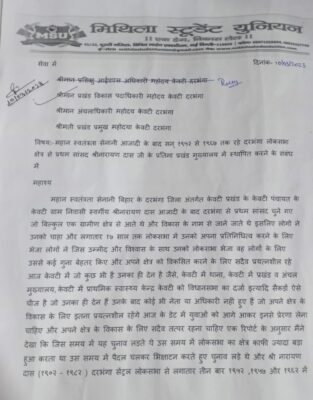 मिथिला स्टूडेंट यूनियन
MSU
सेवा में
दिनांक- 10/03/2025
श्रीमान प्रशिक्षु आईएएस अधिकारी महोदय केवटी दरभंगा
श्रीमान प्रखंड विकास पदाधिकारी महोदय केवटी दरभंगा
श्रीमान अंचलाधिकारी महोदय केवटी दरभंगा
श्रीमती प्रखंड प्रमुख महोदय केवटी दरभंगा
विषय:-महान स्वतंत्रता सेनानी आजादी के बाद सन् १९५२ से १९६७ तक रहे दरभंगा लोकसभा
क्षेत्र से प्रथम सांसद श्रीनारायण दास जी के प्रतिमा प्रखंड मुख्यालय में स्थापित करने के संबंध
में
महाश्य
महान स्वतंत्रता सेनानी बिहार के दरभंगा जिला अंतर्गत केवटी प्रखंड के केवटी पंचायत के
केवटी ग्राम निवासी स्वर्गीय श्रीनारायण दास आजादी के बाद दरभंगा से प्रथम सांसद चुने गए
जो बिल्कुल एक ग्रामीण क्षेत्र से आते थे और विकास के नाम से जाने जाते थे इसलिए लोगों ने
उनको चाहा और लगातार १७ साल तक लोकसभा में उनको अपना प्रतिनिधित्व करने के लिए
भेजा लोगों ने जिस उम्मीद और विश्वास के साथ उनको लोकसभा भेजा वह लोगों के लिए
उससे कई गुना बेहतर किए और अपने क्षेत्र को विकसित करने के लिए सदैव प्रयत्नशील रहे
आज केवटी में जो कुछ भी है उनका ही देन है जैसे, केवटी में थाना, केवटी में प्रखंड व अंचल
मुख्यालय,केवटी में प्राथमिक स्वास्थ्य केन्द्र केवटी को विधानसभा का दर्जा इत्यादि सैकड़ों ऐसे
चीज है जो उनका ही देन है उनके बाद कोई भी नेता या अधिकारी नहीं हुए हैं जो अपने क्षेत्र के
विकास के लिए इतना प्रयत्नशील रहे आज के डेट में युवाओं को आगे आकर इनसे प्रेरणा लेना
चाहिए और अपने क्षेत्र के विकास के लिए सदैव तत्पर रहना चाहिए एक रिपोर्ट के अनुसार मैंने
देखा कि जिस समय में यह चुनाव लड़ते थे उस समय में लोकसभा का क्षेत्र काफी ज्यादा बड़ा
हुआ करता था उस समय में पैदल चलकर भिक्षाटन करते हुए चुनाव लड़े थे और श्री नारायण
दास (१९०२ - १९८२ ) दरभंगा सेंट्रल लोकसभा से लगातार तीन बार १९५२ ,१९५७ और १९६२ में